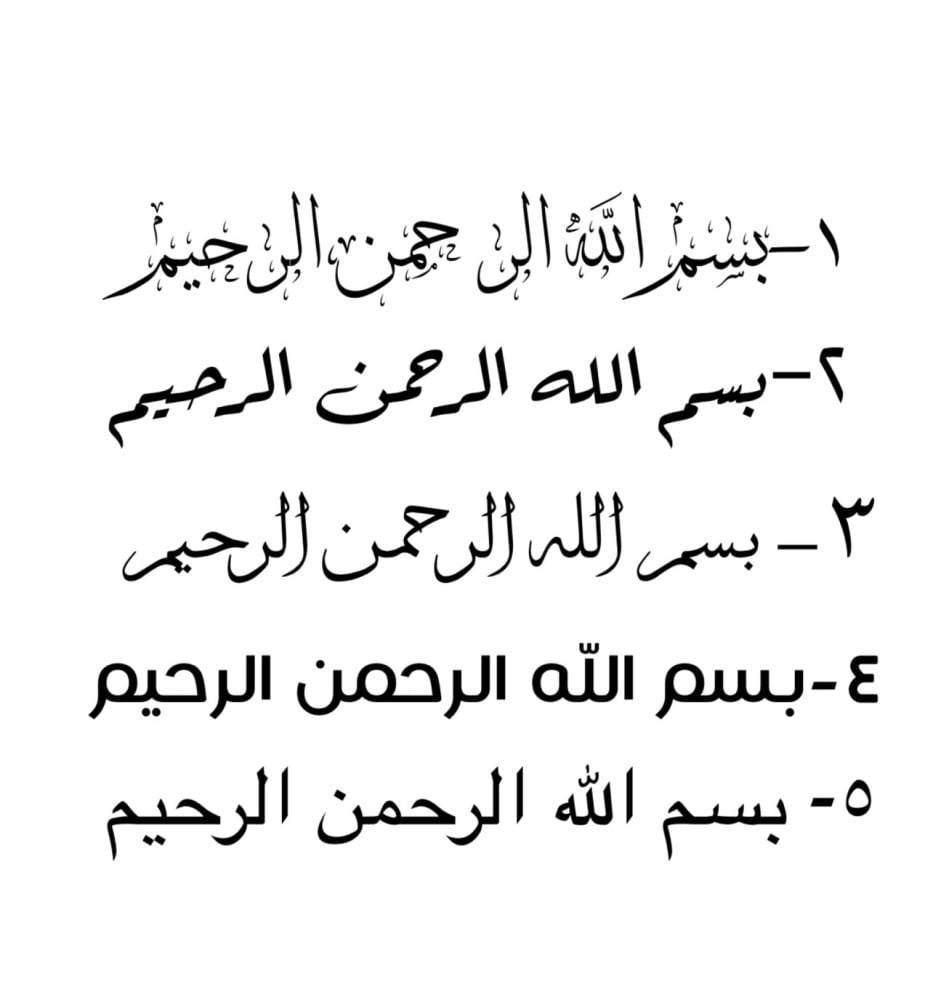 ١-بسم اللَّه الر حمن الرحيم
٢-بسم الله الرحمن الرحيم
٣- بسم الله الرحمن الرحيم
٤-بسم اللّه الرحمن الرحيم
٥- بسم الله الرحمن الرحيم